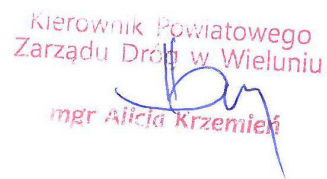 Kierownik Powiatowego
Zarządu Dróg w Wieluniu
mgr Alicja Krzemień